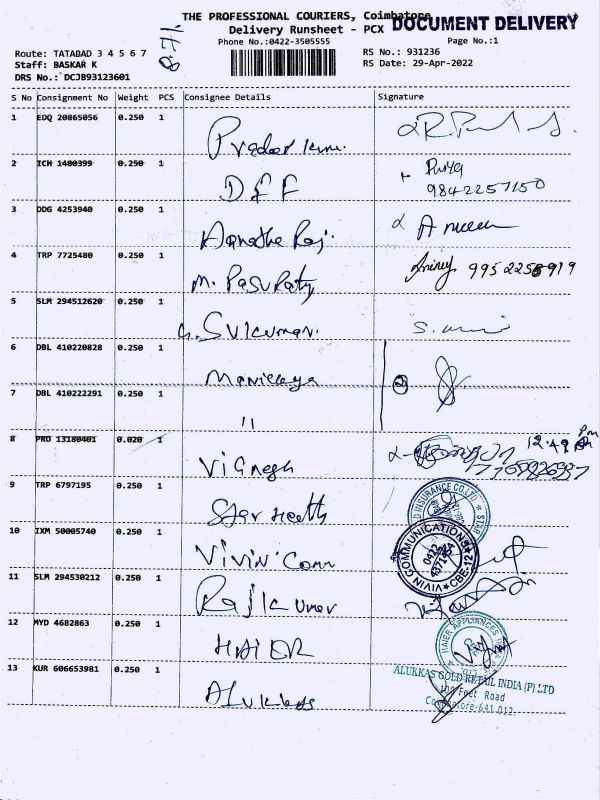 THE PROFESSIONAL COURIERS, Coimbatore
DOCUMENT DELIVERY
Delivery Runsheet - PCX
Phone No.:0422-3505555
Page No.:1
Route: TATABAD 3 4 5 6 7
RS No.: 931236
Staff: BASKAR K
RS Date: 29-Apr-2022
DRS No.: DCJB93123601
S No Consignment No Weight PCS Consignee Details Signature
1 EDQ 20865056 0.250 1
2 ICH 1480399 0.250 1 D F F Priya
9842257150
3 DDG 4253940 0.250 1
4 TRP 7725480 0.250 1 M. Pasupaty
5 SLM 294512620 0.250 1 Sukumar
6 DBL 410220828 0.250 1
7 DBL 410222291 0.250 1 "
8 PRO 13180401 0.020 1 Vignesh 12.49 Pm
9 TRP 6797195 0.250 1 Star Health
10 IXM 50005740 0.250 1 Vivin Comm
VIVIN COMMUNICATIONS CBE-12
11 SLM 294530212 0.250 1 Rajkumar
12 MYD 4682863 0.250 1 HAIER
HAIER APPLIANCES
13 KUR 606653981 0.250 1 Alukkas
ALUKKAS GOLD RETAIL INDIA (P) LTD
100 Feet Road
Coimbatore-641 012.